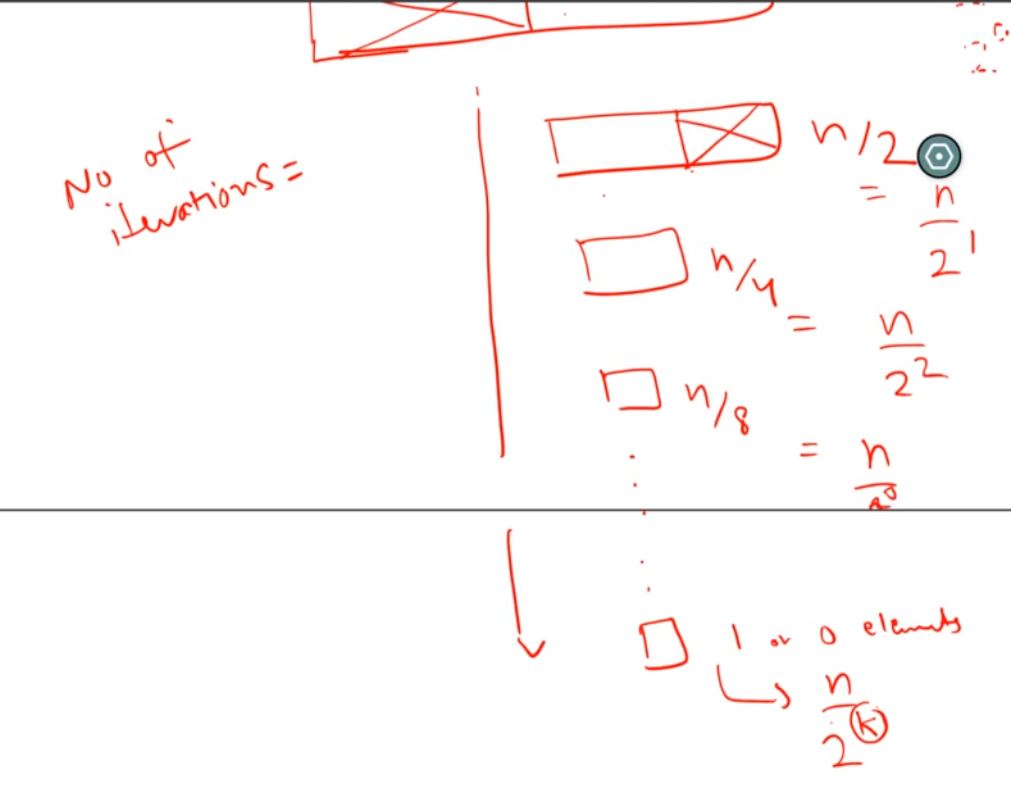 No of
iterations =
n/2
= n/2^1
n/4
= n/2^2
n/8
= n
1 or 0 elements
n/2^k